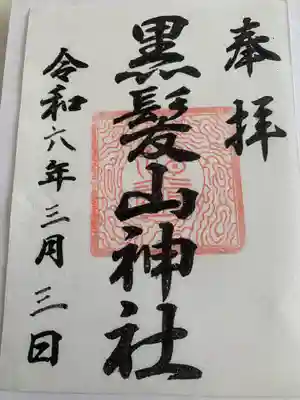 奉拝
黒髪山神社
令和六年三月三日